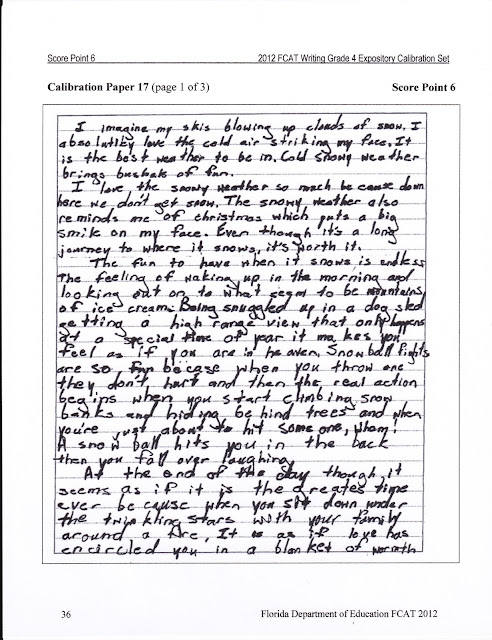 Score Point 6 2012 FCAT Writing Grade 4 Expository Calibration Set
Calibration Paper 17 (page 1 of 3) Score Point 6
I imagine my skis blowing up clouds of snow. I
absolutley love the cold air striking my face. It
is the best weather to be in. Cold snowy weather
brings bushals of fun.
I love the snowy weather so much be cause down
here we don't get snow. The snowy weather also
reminds me of christmas which puts a big
smile on my face. Even though it's a long
journey to where it snows, it's worth it.
The fun to have when it snows is endless
The feeling of waking up in the morning and
looking out on to what seem to be mountains
of ice cream. Being snuggled up in a dog sled
getting a high range view that only happens
at a special time of year it makes you
feel as if you are in heaven. Snowball fights
are so fun becase when you throw one
they don't hurt and then the real action
begins when you start climbing snow
banks and hiding behind trees and when
you're just about to hit some one, wham!
A snow ball hits you in the back
then you fall over laughing.
At the end of the day though, it
seems as if it is the greates time
ever be cause when you sit down under
the twinkling stars with your family
around a fire, It is as if love has
encircled you in a blanket of warmth
36 Florida Department of Education FCAT 2012